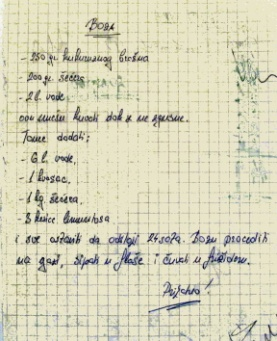 Boza
- 250 gr. kukuruznog brašna
- 200 gr. šećera
- 2 l. vode
ovu smešu kuvati dok se ne zgusne.
Tome dodati:
- 6 l. vode,
- 1 kvasac,
- 1 kg šećera,
- 3 kesice limuntosa
i sve ostaviti da odstoji 24 sata. Bozu procediti
na gazu, sipati u flaše i čuvati u frižideru.
Prijatno!